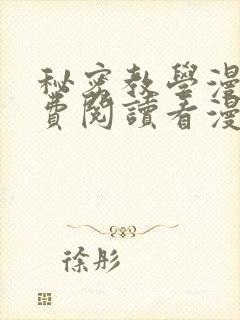 秘密教學漫
費閱讀看漫
徐彤